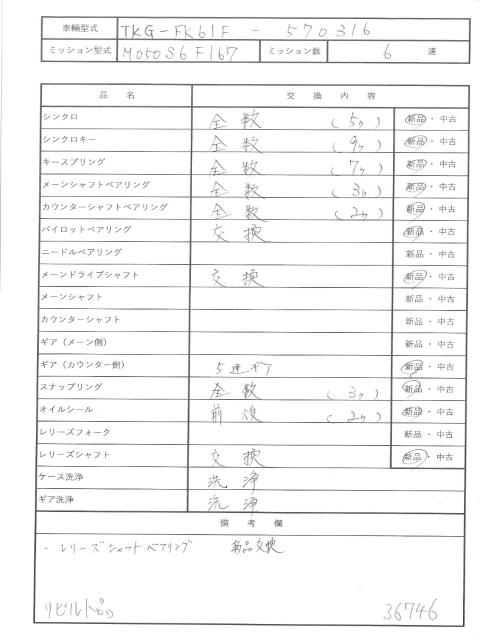 車輛型式 TKG-FK61F - 570316
ミッション型式 M050S6F167 ミッション数 6 速
品 名 交 換 内 容
シンクロ 全 数 (5ヶ) 新品・中古
シンクロキー 全 数 (9ヶ) 新品・中古
キースプリング 全 数 (7ヶ) 新品・中古
メーンシャフトベアリング 全 数 (3ヶ) 新品・中古
カウンターシャフトベアリング 全 数 (2ヶ) 新品・中古
パイロットベアリング 交 換 新品・中古
ニードルベアリング 新品・中古
メーンドライブシャフト 交 換 新品・中古
メーンシャフト 新品・中古
カウンターシャフト 新品・中古
ギア(メーン側) 新品・中古
ギア(カウンター側) 5速ギア 新品・中古
スナップリング 全 数 (3ヶ) 新品・中古
オイルシール 前 後 (2ヶ) 新品・中古
レリーズフォーク 新品・中古
レリーズシャフト 交 換 新品・中古
ケース洗浄 洗 浄
ギア洗浄 洗 浄
備 考 欄
・レリーズシャフトベアリング 新品交換
リビルト 36746